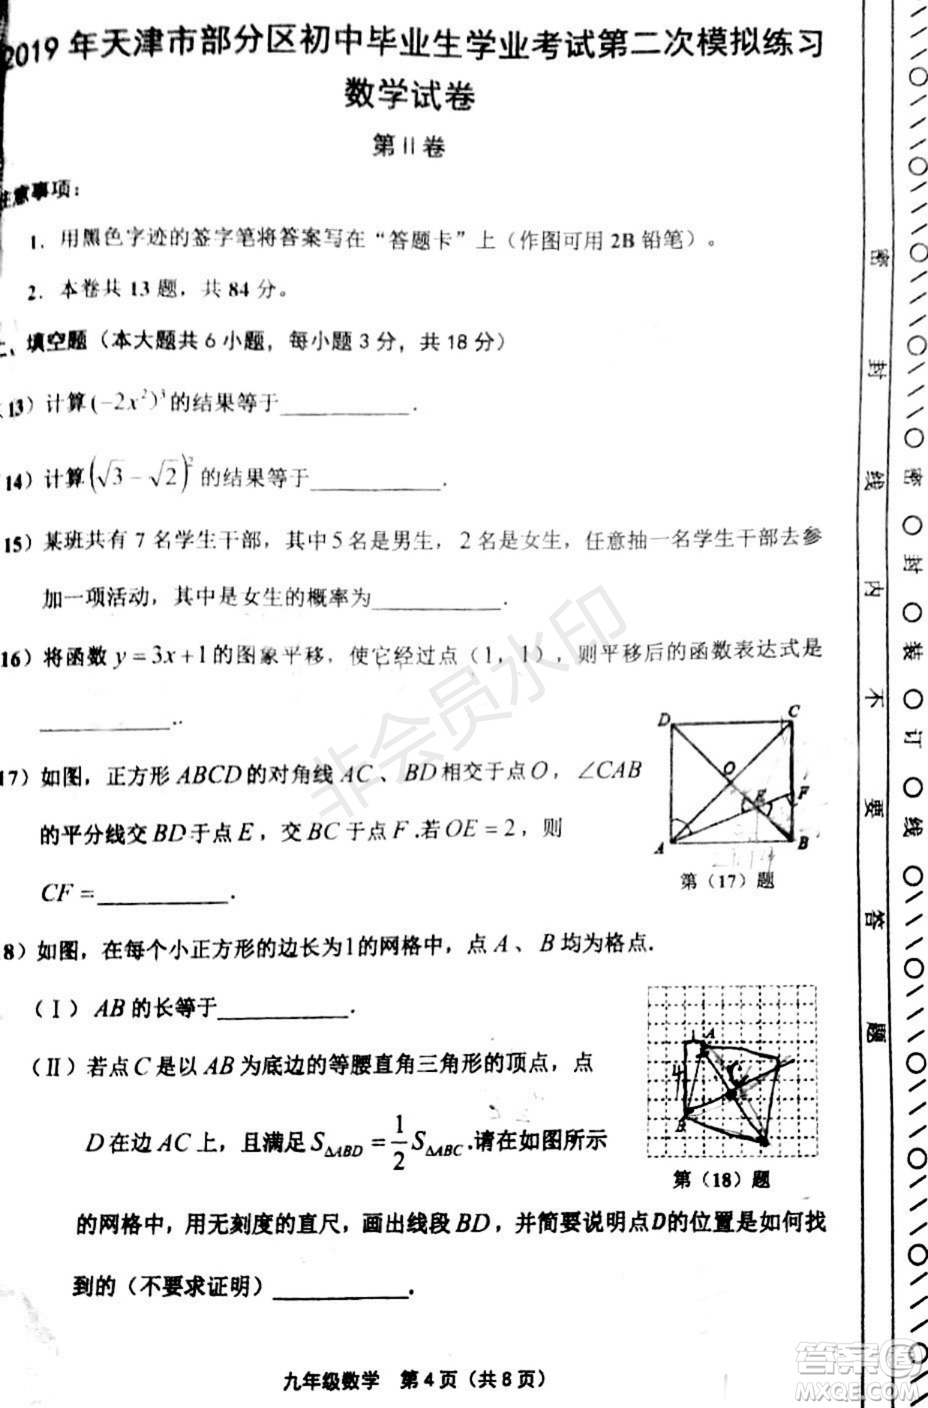 2019 年天津市部分区初中毕业生学业考试第二次模拟练习
数学试卷
第 II 卷
注意事项：
1. 用黑色字迹的签字笔将答案写在“答题卡”上（作图可用 2B 铅笔）。
2. 本卷共 13 题，共 84 分。
二、填空题（本大题共 6 小题，每小题 3 分，共 18 分）
13）计算 (-2x²)³ 的结果等于__________.
14）计算 (√3 - √2)² 的结果等于__________.
15）某班共有 7 名学生干部，其中 5 名是男生，2 名是女生，任意抽一名学生干部去参
加一项活动，其中是女生的概率为__________.
16）将函数 y = 3x + 1 的图象平移，使它经过点（1，1），则平移后的函数表达式是
__________.
17）如图，正方形 ABCD 的对角线 AC 、BD 相交于点 O，∠CAB
的平分线交 BD 于点 E，交 BC 于点 F.若 OE = 2，则
CF = __________.
D
C
O
E
F
A
B
第（17）题
8）如图，在每个小正方形的边长为 1 的网格中，点 A 、B 均为格点.
（I）AB 的长等于__________.
（II）若点 C 是以 AB 为底边的等腰直角三角形的顶点，点
D 在边 AC 上，且满足 S△ABD = 1/2 S△ABC .请在如图所示
1
A
4
C
B
第（18）题
的网格中，用无刻度的直尺，画出线段 BD，并简要说明点D的位置是如何找
到的（不要求证明）__________.
九年级数学 第 4 页（共 8 页）
密
封
线
内
不
要
答
题
密 封 装 订 线
非会员水印
答案圈
MXQE.COM